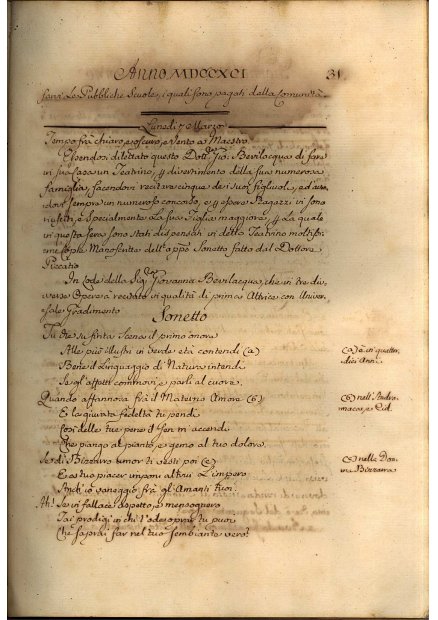 ANNO MDCCXCI
31
le Pubbliche Scuole, i quali sono pagati dalla Comunità.
Lunedi 7 Marzo
Tempo frà chiaro, e oscuro, e Vento a Maestro
Essendosi dilettato questo Dott. Gio: Bevilacqua di fare
in sua Casa un Teatrino, divertimento della sua numerosa
famiglia, facendovi recitare cinque de' suoi figliuoli, ed
sempre un numeroso concorso, e Ragazzi vi sono
e specialmente la sua Figlia maggiore, la quale
in questa sera sono stati dispensati in detto Teatrino
Copie Manoscritte dell' Sonetto fatto dal Dottore
In lode della Sig. Giovanna Bevilacqua, che in tre di-
verse Opere à recitato in qualità di prima Attrice con Univer-
sale Gradimento
Sonetto
Tu che su finta Scena il primo onore
Alle più illustri in verde età contendi (a)
Bene il Linguaggio di Natura intendi
Se gl' affetti commovi, e parli al cuore.
Quando affannosa frà il Materno Amore (b)
E la giurata fedeltà tu pendi
delle tue pene il Sen m' accendi
Che piango al pianto, e gemo al tuo dolore.
Se di Bizzarro umor ti vesti poi (c)
E a tuo piacer imponi altrui l' impero
Anch' io vaneggio fra gl' Amanti tuoi.
Ah! Se in fallace aspetto, e menzognero
Tai prodigi in chi t' ode oprar tu puoi
Che saprai far nel tuo Sembiante vero!
(a) è in quattor-
dici Anni.
(b) nell' Andro-
maca, e Cid.
(c) nella Don-
na Bizzarra